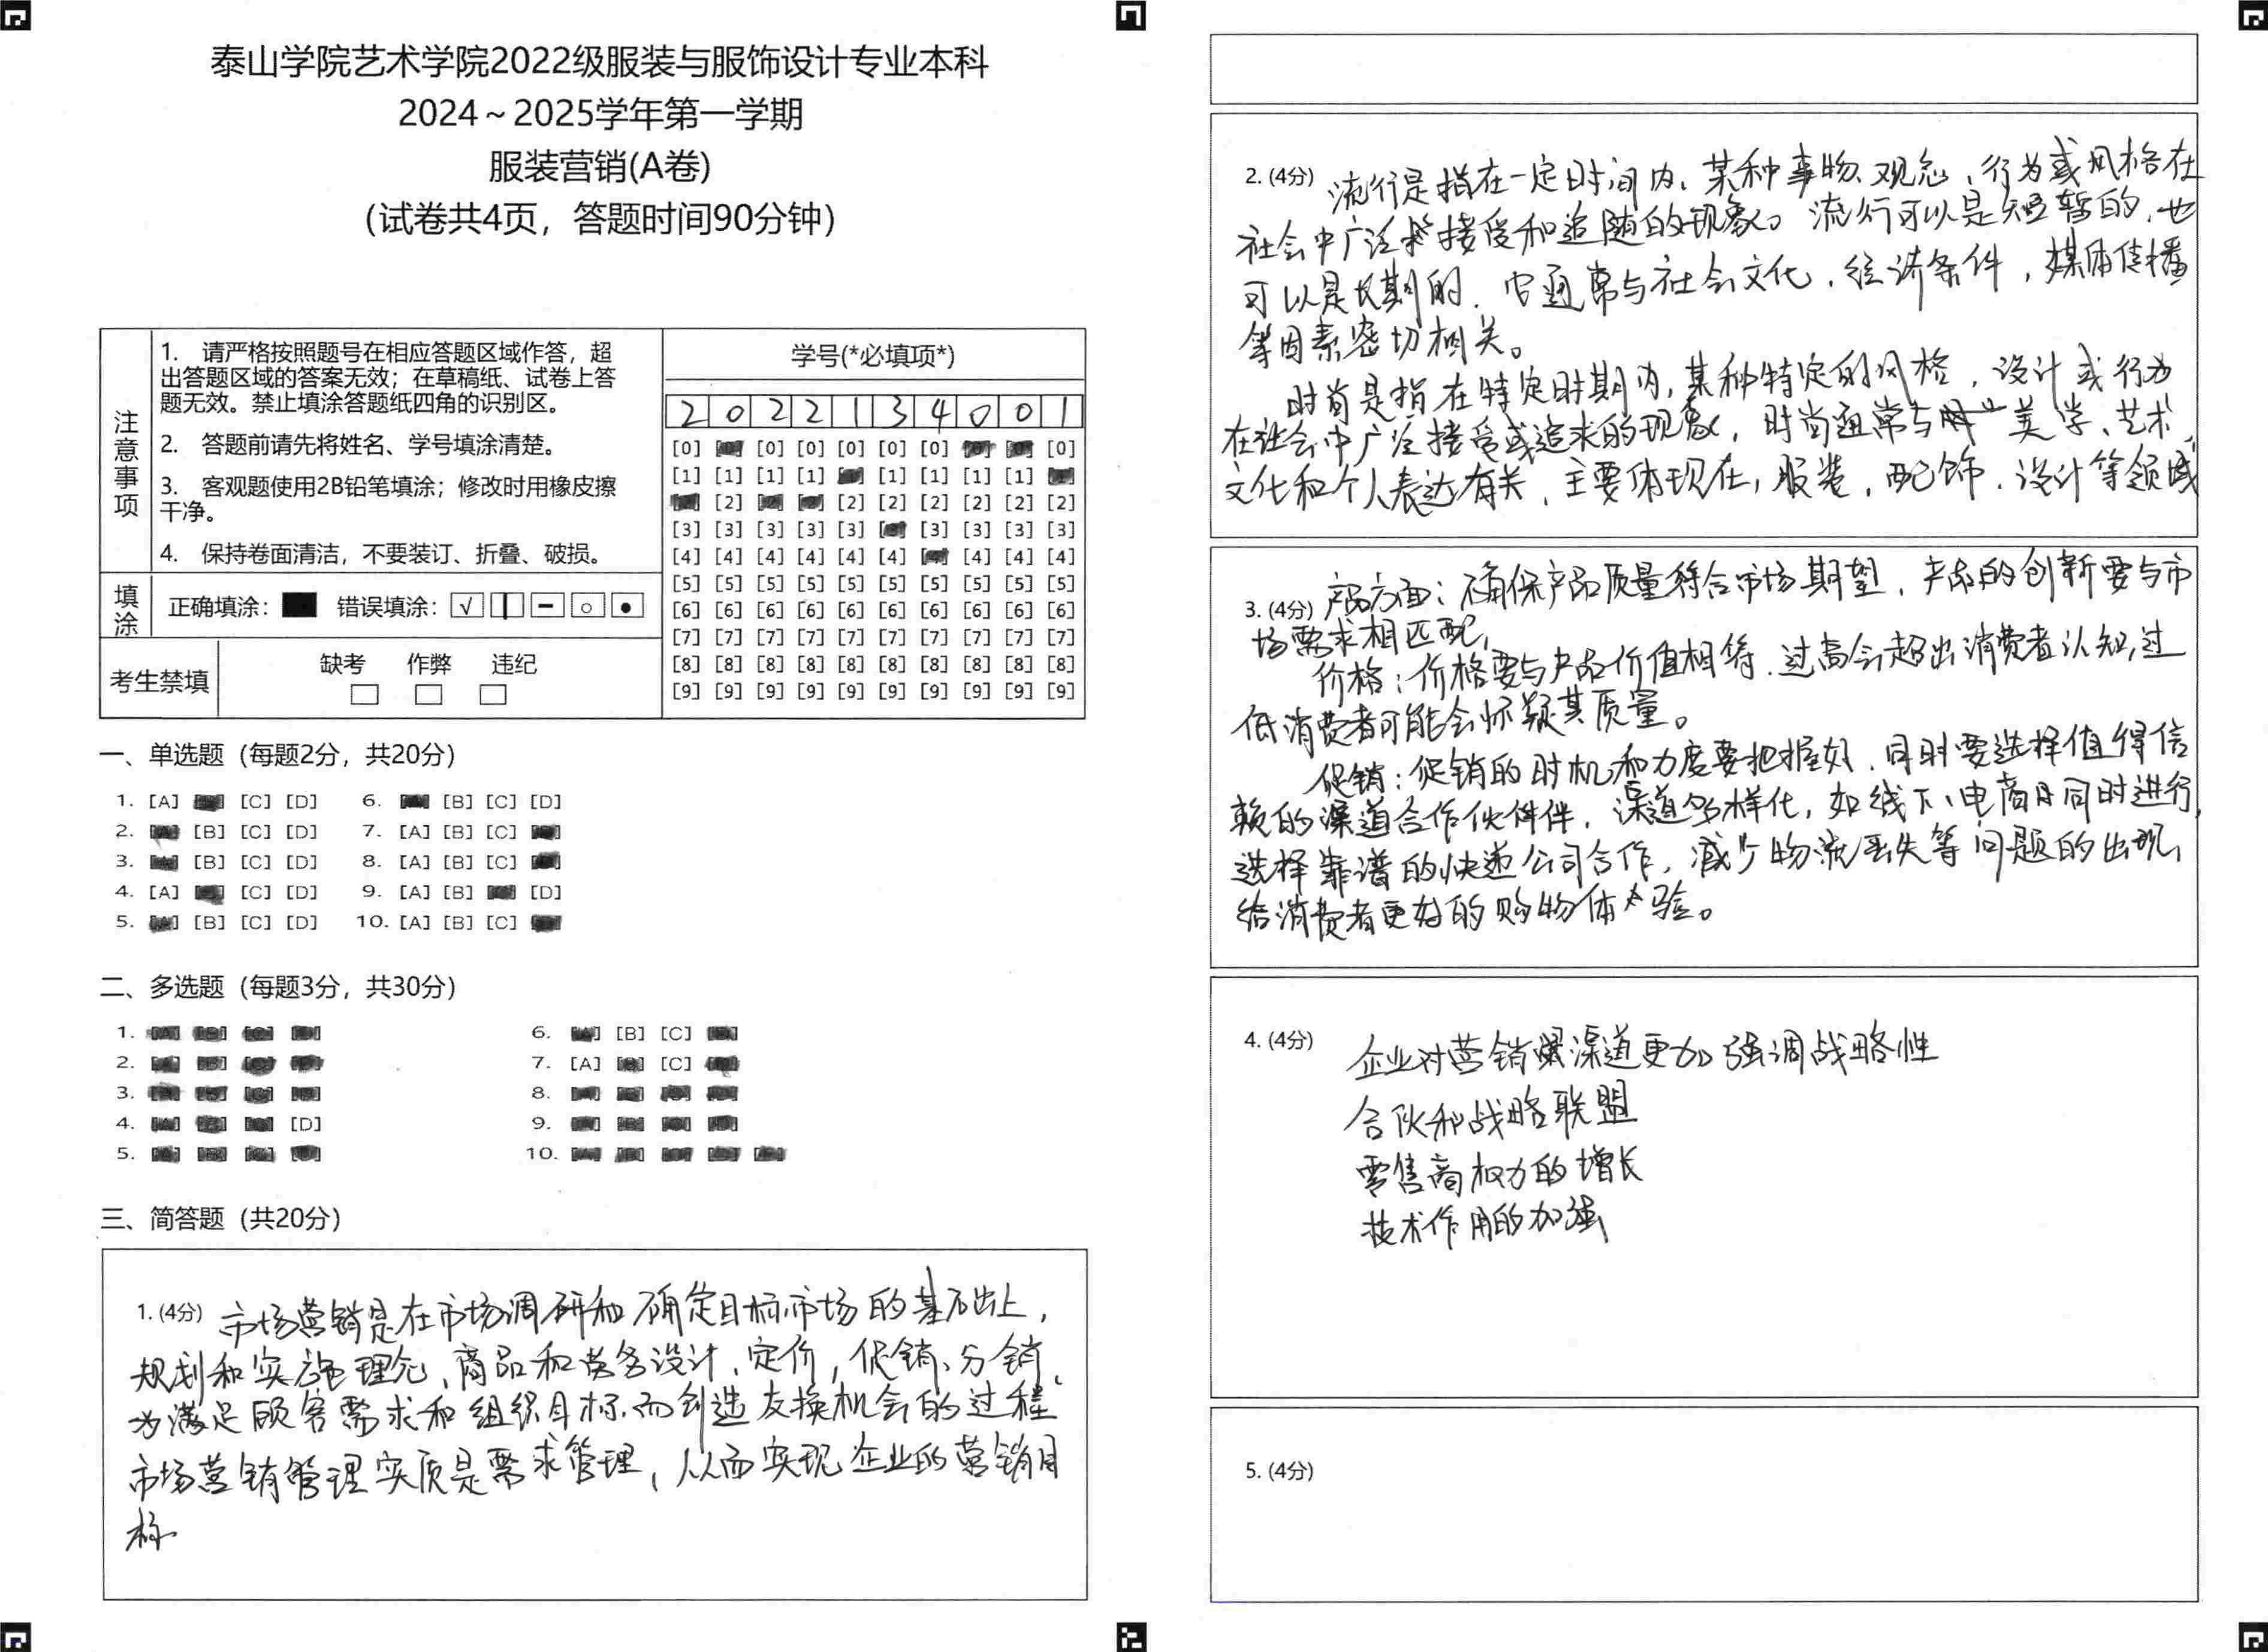 泰山学院艺术学院2022级服装与服饰设计专业本科
2024～2025学年第一学期
服装营销(A卷)
(试卷共4页，答题时间90分钟)
注意事项
1. 请严格按照题号在相应答题区域作答，超
出答题区域的答案无效；在草稿纸、试卷上答
题无效。禁止填涂答题纸四角的识别区。
2. 答题前请先将姓名、学号填涂清楚。
3. 客观题使用2B铅笔填涂；修改时用橡皮擦
干净。
4. 保持卷面清洁，不要装订、折叠、破损。
填涂
正确填涂： 错误填涂：
考生禁填
缺考 作弊 违纪
学号(*必填项*)
2 0 2 2 1 3 4 0 0 1
[0] [0] [0] [0] [0] [0] [0]
[1] [1] [1] [1] [1] [1] [1] [1]
[2] [2] [2] [2] [2] [2] [2]
[3] [3] [3] [3] [3] [3] [3] [3] [3]
[4] [4] [4] [4] [4] [4] [4] [4] [4]
[5] [5] [5] [5] [5] [5] [5] [5] [5] [5]
[6] [6] [6] [6] [6] [6] [6] [6] [6] [6]
[7] [7] [7] [7] [7] [7] [7] [7] [7] [7]
[8] [8] [8] [8] [8] [8] [8] [8] [8] [8]
[9] [9] [9] [9] [9] [9] [9] [9] [9] [9]
一、单选题（每题2分，共20分）
1. [A] [C] [D] 6. [B] [C] [D]
2. [B] [C] [D] 7. [A] [B] [C]
3. [B] [C] [D] 8. [A] [B] [C]
4. [A] [C] [D] 9. [A] [B] [D]
5. [B] [C] [D] 10. [A] [B] [C]
二、多选题（每题3分，共30分）
1. 6. [B] [C]
2. 7. [A] [C]
3. 8.
4. [D] 9.
5. 10.
三、简答题（共20分）
1. (4分) 市场营销是在市场调研和确定目标市场的基础上，
规划和实施理念、商品和劳务设计、定价，促销、分销、
为满足顾客需求和组织目标而创造交换机会的过程
市场营销管理实质是需求管理，从而实现企业的营销目
标
2. (4分) 流行是指在一定时间内、某种事物、观念、行为或风格在
社会中广泛接受和追随的现象。流行可以是短暂的、也
可以是长期的、它通常与社会文化、经济条件，媒体传播
等因素密切相关。
时尚是指在特定时期内，某种特定的风格，设计或行为
在社会中广泛接受或追求的现象，时尚通常与美学、艺术、
文化和个人表达有关，主要体现在，服装，配饰、设计等领域
3. (4分) 产品方面：确保产品质量符合市场期望，产品的创新要与市
场需求相匹配，
价格：价格要与产品价值相符、过高会超出消费者认知，过
低消费者可能会怀疑其质量。
促销：促销的时机和力度要把握好、同时要选择值得信
赖的渠道合作伙伴，渠道多样化，如线下、电商同时进行，
选择靠谱的快递公司合作，减少物流丢失等问题的出现，
给消费者更好的购物体验。
4. (4分) 企业对营销渠道更加强调战略性
合伙和战略联盟
零售商权力的增长
技术作用的加强
5. (4分)